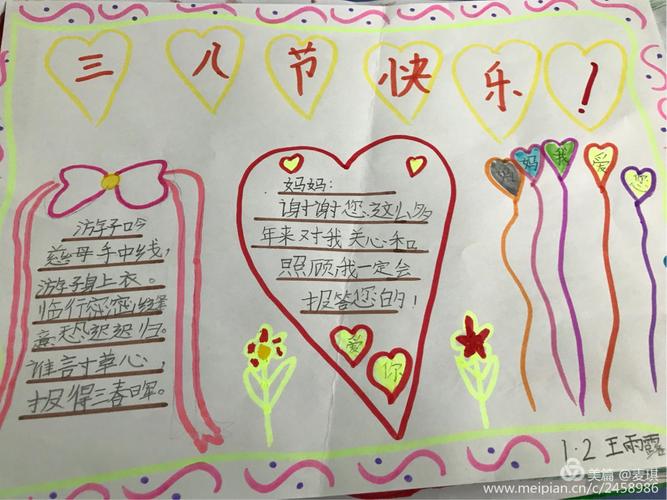 三八节快乐！
游子吟
慈母手中线，
游子身上衣。
临行密密缝
意恐迟迟归。
谁言寸草心，
报得三春晖。
妈妈：
谢谢您这么多
年来对我关心和
照顾我一定会
报答您的！
爱
你
妈妈我爱您
1.2 王雨露
美篇 @麦琪
www.meipian.cn/c/2458986